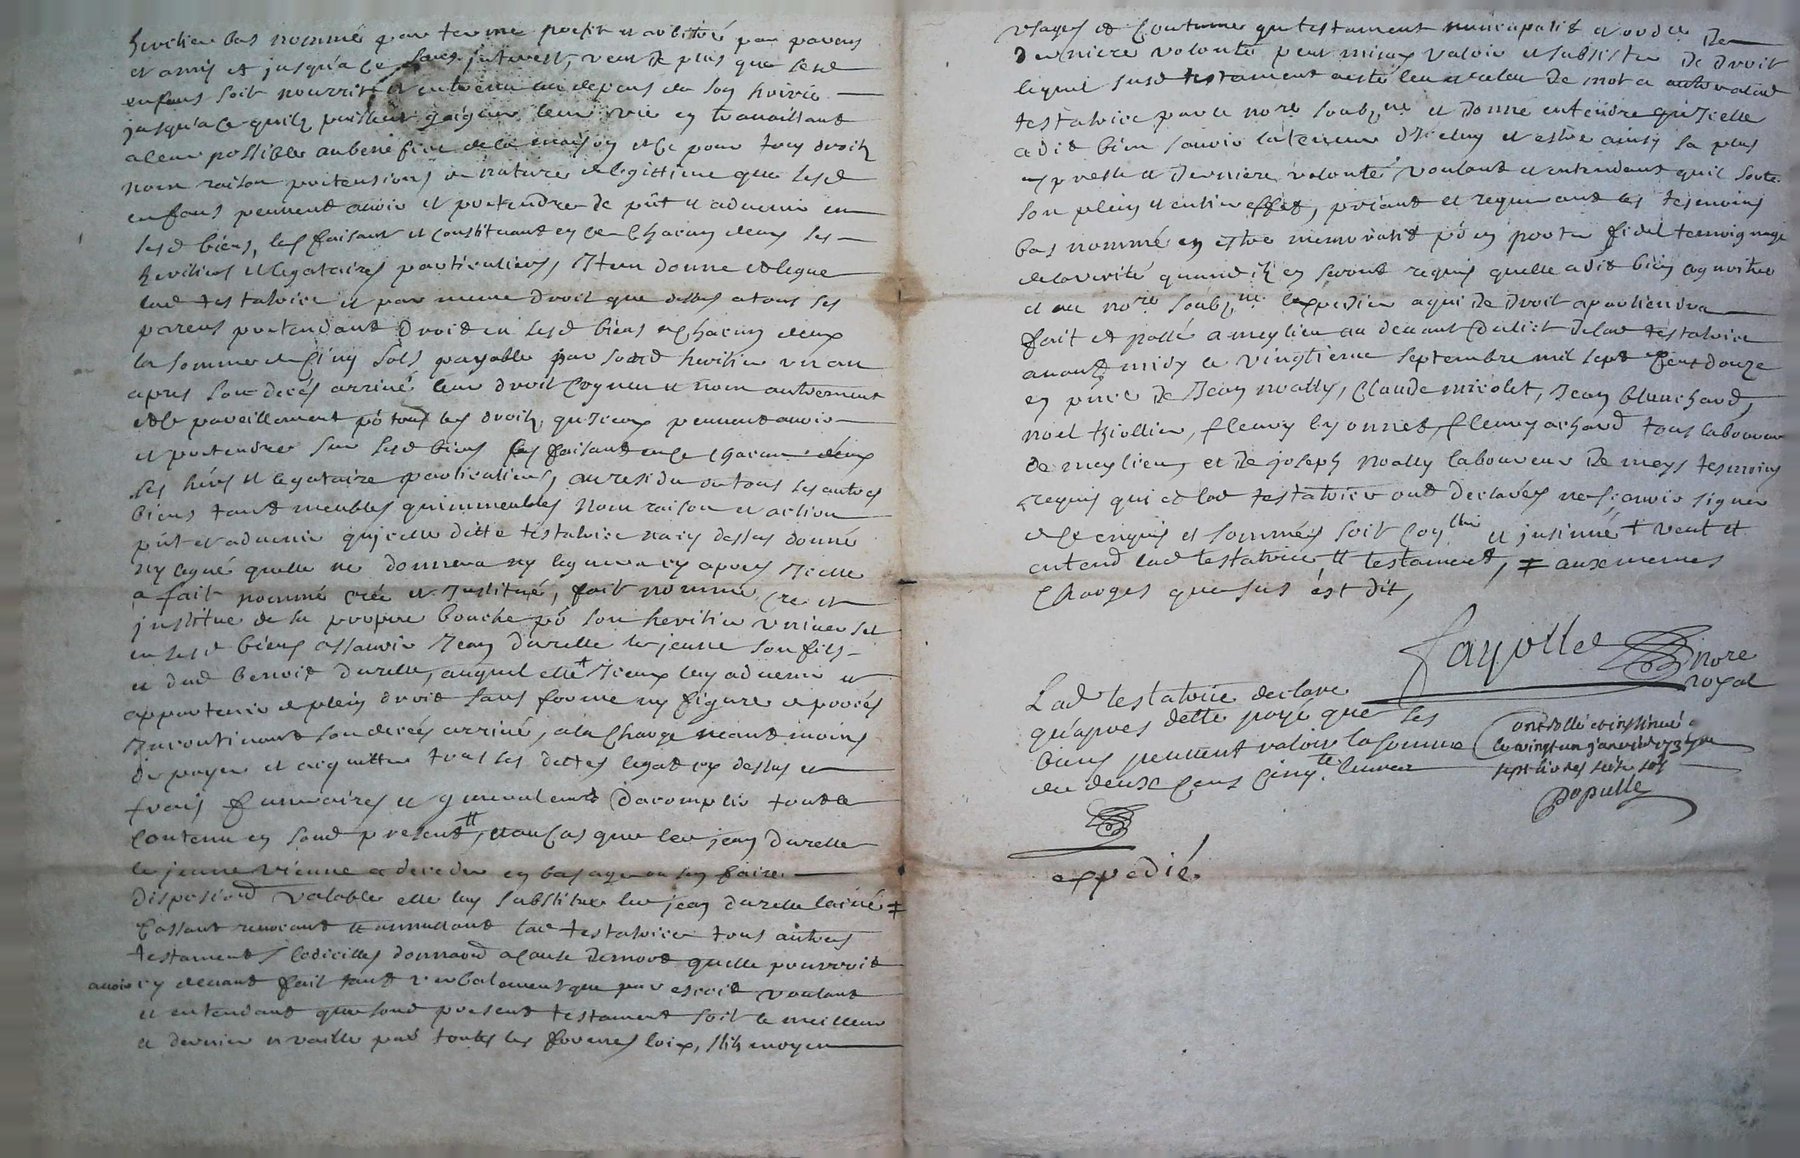 heritier bas nommé par terme prefix et arbitré par parens
et amis et jusqu'a ce sans interest, veut de plus que lesd
enfans soit nourrit et entretenu au depens de son hoirie
jusqu'a ce quilz puissent gaigner leur vie en travaillant
a leur possible au benefice de la maison et ce pour tous droitz
nom raison pretensions de nature et legittime que lesd
enfans peuvent avoir et pretendre de pñt et advenir en
sesd biens, les faisant et constituant en ce chacun deux ses
heritiers et legataires particuliers, Item donne et legue
lad testatrice et par meme droit que dessus a tous ses
parens pretendant droit en sesd biens a chacun deux
la somme de cinq sols payable par sond heritier un an
apres son deces arrivé leur droit cognu et nom autrement
et ce pareillement pō tous les droitz qu'iceux peuvent avoir
et pretendre sur sesd biens les faisant en ce chacun deux
ses hérs et legataire particuliers, au residu de tous ses autres
biens tant meubles qu'immeubles nom raison et action
pñt et advenir qu'icelle ditte testatrice n'a cy dessus donné
ny legué quelle ne donnera ny leguera cy apres Icelle
a fait nommé créé et Institué, fait nomme cre et
institue de sa propre bouche pō son heritier universel
en sesd biens assavoir Jean durelle le jeune son fils
et dud Benoit durelle, auquel elle veut Iceux luy advenir et
appartenir de plein droit sans forme ny figure de proces
Incontinant son decés arrivé, a la charge neantmoins
de payer et acquitter tous ses dettes legat cy dessus et
frais funeraires et generalement d'acomplir tout le
contenu en sond present tt, et au cas que led jean durelle
le jeune vienne a deceder en bas age ou sen faire
disposiõn valable elle luy substitue led jean durelle lainé ≠
Cassant revocant et annullant lad testatrice tous autres
testaments codicilles donnaõn a cause de mort quelle pourroit
avoir cy devant fait tant verbalement que par escrit voulant
et entendant que sond present testament soit le meilleur
et dernier et vaille par toutes les formes loix, stilz moyen
usages et coutumes que testament nuncupatif et ordre De
derniere volonté peut mieux valoir et subsister de droit
lequel susd testament a esté leu et releu de mot a autre a lad
testatrice par le nore soubzné et donné entendre qu'Icelle
a dit bien scavoir la teneur d'Iceluy et estre ainsy sa plus
expresse et derniere volonté voulant et entendant quil sorte
son plein et entier effet, priant et requerant les tesmoins
bas nommé en estre memoratif pō en porter fidel temoignage
de la verité quand ilz en seront requis quelle a dit bien cognoitre
et au nore soubzné l'expedier a qui de droit apartiendra
fait et passé a meylieu au devant du lict de lad testatrice
avant midy le vingtieme septembre mil sept cent douze
en pnce de Jean noally, Claude micolet, Jean blanchard,
noel thiollier, fleury lyonnet, fleury achard tous laboureur
de meylieu, et de joseph noally laboureur de meys tesmoins
requis qui et lad testatrice ont declarés ne scavoir signer
de ce enquis et sommés soit conllé et insinué + veut et
entend lad testatrice, tt testament, ≠ aux memes
charges que sus est dit,
Fayolle nore
royal
Lad testatrice declare
qu'apres dette payé que ses
biens peuvent valoir la somme
de deux cens cinqte livres
Controllé et insinué
le vingt un janvier
sept livres seize sols
Populle
expedié.